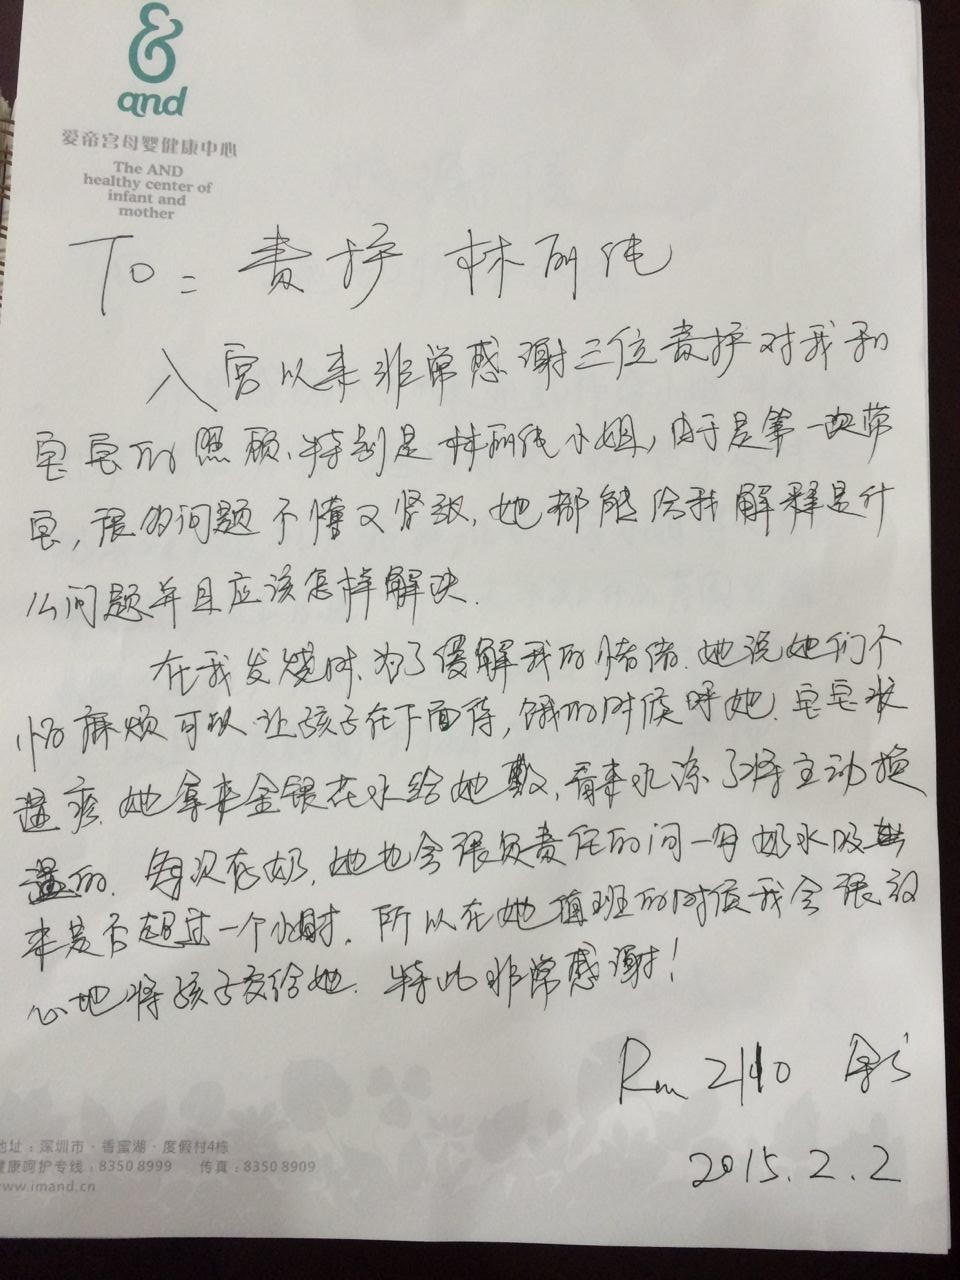 &
and
爱帝宫母婴健康中心
The AND
healthy center of
infant and
mother
To: 责护 林丽纯
入宫以来非常感谢三位责护对我和
宝宝的照顾、特别是林丽纯小姐,由于是第一次带
宝,很多问题不懂又紧张,她都能给我解释是什
么问题并且应该怎样解决.
在我发烧时、为了缓解我的情绪.她说她们不
怕麻烦可以让孩子在下面待,饿的时候呼她.宝宝长
湿疹.她拿来金银花水给她敷,看来水凉了将主动换
温的.每次存奶,她也会很负责任的问一句奶水吸出
来是否超过一个小时.所以在她值班的时候我会很放
心地将孩子交给她.特此非常感谢!
Rm 2110
2015.2.2
地址:深圳市·香蜜湖·度假村4栋
健康呵护专线:8350 8999 传真:8350 8909
www.imand.cn